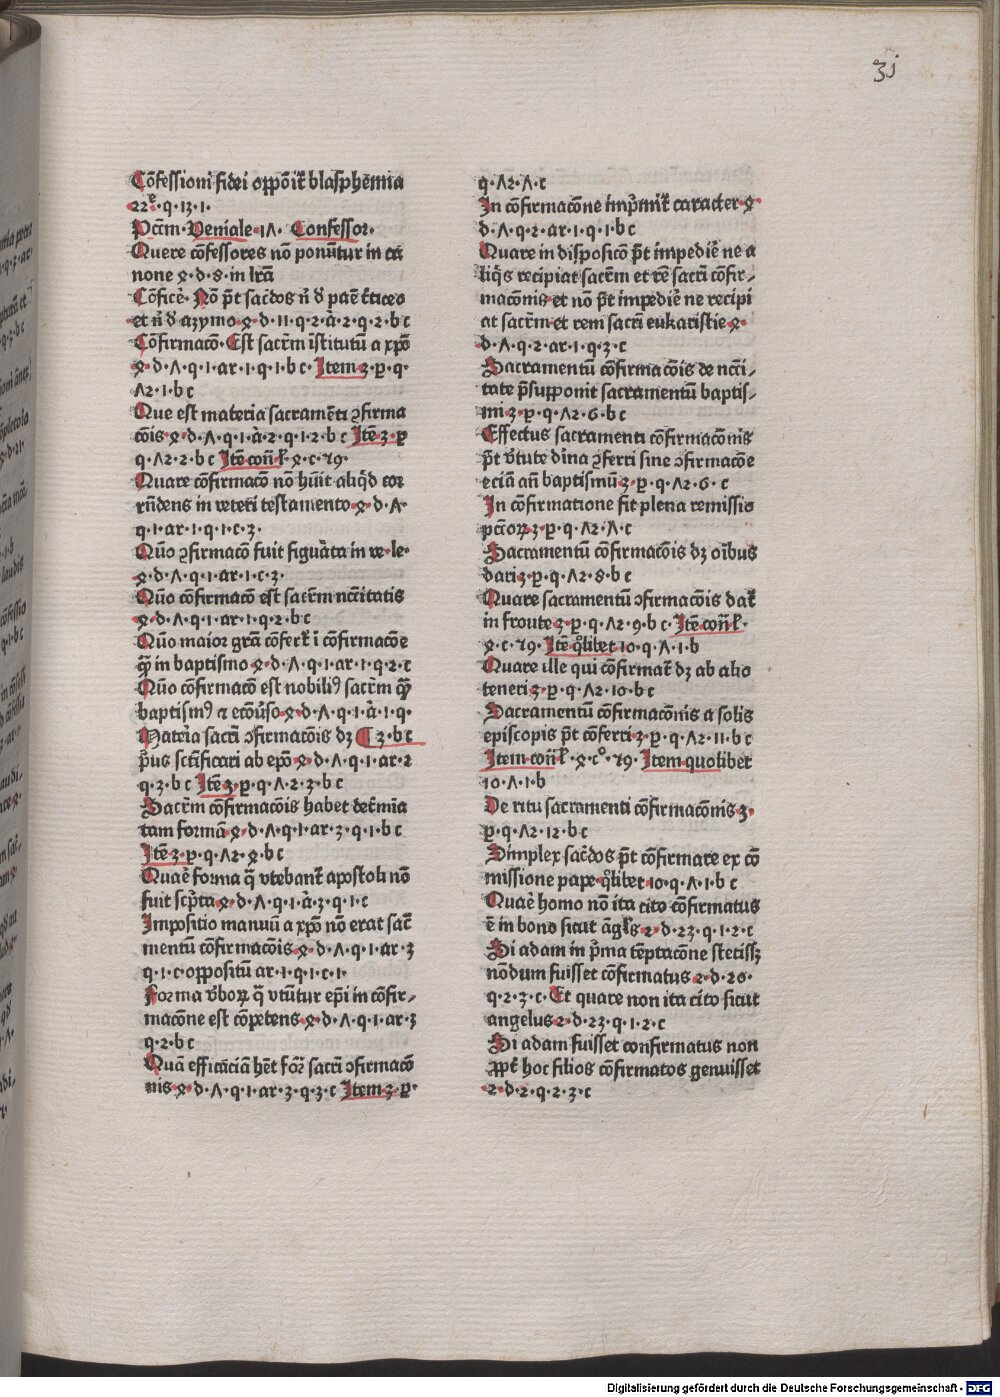 31
Cōfessioni fidei oppōit᷑ blasphēmia
22e·q·13·1·
Pctm·Veniale·17· Confessor·
Quere cōfessores nō ponūtur in ca
none 4·d·8·in lr̄a
Cōficē· Nō pt̄ sac̄dos
et n̄ d̄ azymo 4·d·11·q·2·a·2·q·2·b c
Cōfirmacō· Est sacr̄m īstitutū a xp̄o
4·d·7·q·1·ar·1·q·1·b c· Item 3·p·q·
72·1·b c
Que est materia sacramēti ꝯfirma
cōis 4·d·7·q·1·a·2·q·1·2·b c Itē 3·p
q·72·2·b c Itē con̄ l᷑·4·c·79·
Quare cōfirmacō nō hūit aliq̄d cor
rn̄dens in veteri testamento 4·d·7·
q·1·ar·1·q·1·c·3·
Quō ꝯfirmacō fuit figurata in ve·le·
4·d·7·q·1·ar·1·c·3·
Quō cōfirmacō est sacr̄m nc̄citatis
4·d·7·q·1·ar·1·q·2·b c
Quō maior gr̄a cōfert᷑ ī cōfirmacōe
q̄ꝫ in baptismo 4·d·7·q·1·ar·1·q·2·c
Quō cōfirmacō est nobiliꝰ sacr̄m q̄ꝫ
baptismꝰ ⁊ ecōuſo 4·d·7·q·1·a·1·q·
Materia sacri ꝯfirmacōis dꝫ ¶ 3·b c
pͥus sctīficari ab ep̄o 4·d·7·q·1·ar·2
q·3·b c Itē 3·p·q·72·3·b c
Sacr̄m cōfirmacōis habet det̄mīa
tam formā 4·d·7·q·1·ar·3·q·1·b c
Itē 3·p·q·72·4·b c
Quaē forma q̄ vtebant᷑ apostoli nō
fuit scp̄ta 4·d·7·q·1·a·3·q·1·c
Impositio manuū a xp̄o nō erat sac̄
mentū cōfirmacōis 4·d·7·q·1·ar·3
q·1·c·oppositū ar·1·q·1·c·1·
Forma v̄boꝝ q̄ vtūtur ep̄i in cōfir⸗
macōne est cōpetens 4·d·7·q·1·ar·3
q·2·b c
Quā efficaciā hēt for̄ sacri ꝯfirmacō
nis 4·d·7·q·1·ar·3·q·3·c Item 3·p·
q·72·7·c
In cōfirmacōne imp̄mit᷑ caracter 4·
d·7·q·2·ar·1·q·1·b c
Quare in disposicō pt̄ impediē ne a
liq̄s recipiat sacr̄m et rē sacri cōfir⸗
macōnis et nō pt̄ impediē ne recipi
at sacr̄m et rem sacri eukaristie 4·
d·7·q·2·ar·1·q·3·c
Sacramentū cōfirmacōis de nc̄ci⸗
tate p̄supponit sacramentū baptis⸗
mi 3·p·q·72·6·b c
Effectus sacramenti cōfirmacōnis
pt̄ v̄tute diīna ꝯferri sine ꝯfirmacōe
eciā an̄ baptismū 3·p·q·72·6·c
In cōfirmatione fit plena remissio
pctōꝝ 3·p·q·72·7·c
Sacramentū cōfirmacōis dꝫ oībus
dari 3·p·q·72·8·b c
Quare sacramentū ꝯfirmacōis dat᷑
in fronte 3·p·q·72·9·b c· Itē con̄ l᷑·
4·c·79· Itē q̄libet 10·q·7·1·b
Quare ille qui cōfirmat᷑ dꝫ ab alio
teneri 3·p·q·72·10·b c
Sacramentū cōfirmacōnis a solis
episcopis pt̄ cōferri 3·p·q·72·11·b c
Item con̄ l᷑·4·c°·79· Item quolibet
10·7·1·b
De ritu sacramenti cōfirmacōnis 3·
p·q·72·12·b c
Simplex sac̄dos pt̄ confirmare ex cō
missione pape q̄libet 10·q·7·1·b c
Quaē homo nō ita cito cōfirmatus
ē in bono sicut āgl̄s 2·d·23·q·1·2·c
Si adam in pͥma tēptacōne stetissꝫ
nōdum fuisset cōfirmatus 2·d·20·
q·2·3·c· Et quare non ita cito sicut
angelus 2·d·23·q·1·2·c
Si adam fuisset confirmatus non
ꝓpt̄ hoc filios cōfirmatos genuisset
2·d·2·q·2·3·c
Digitalisierung gefördert durch die Deutsche Forschungsgemeinschaft - DFG